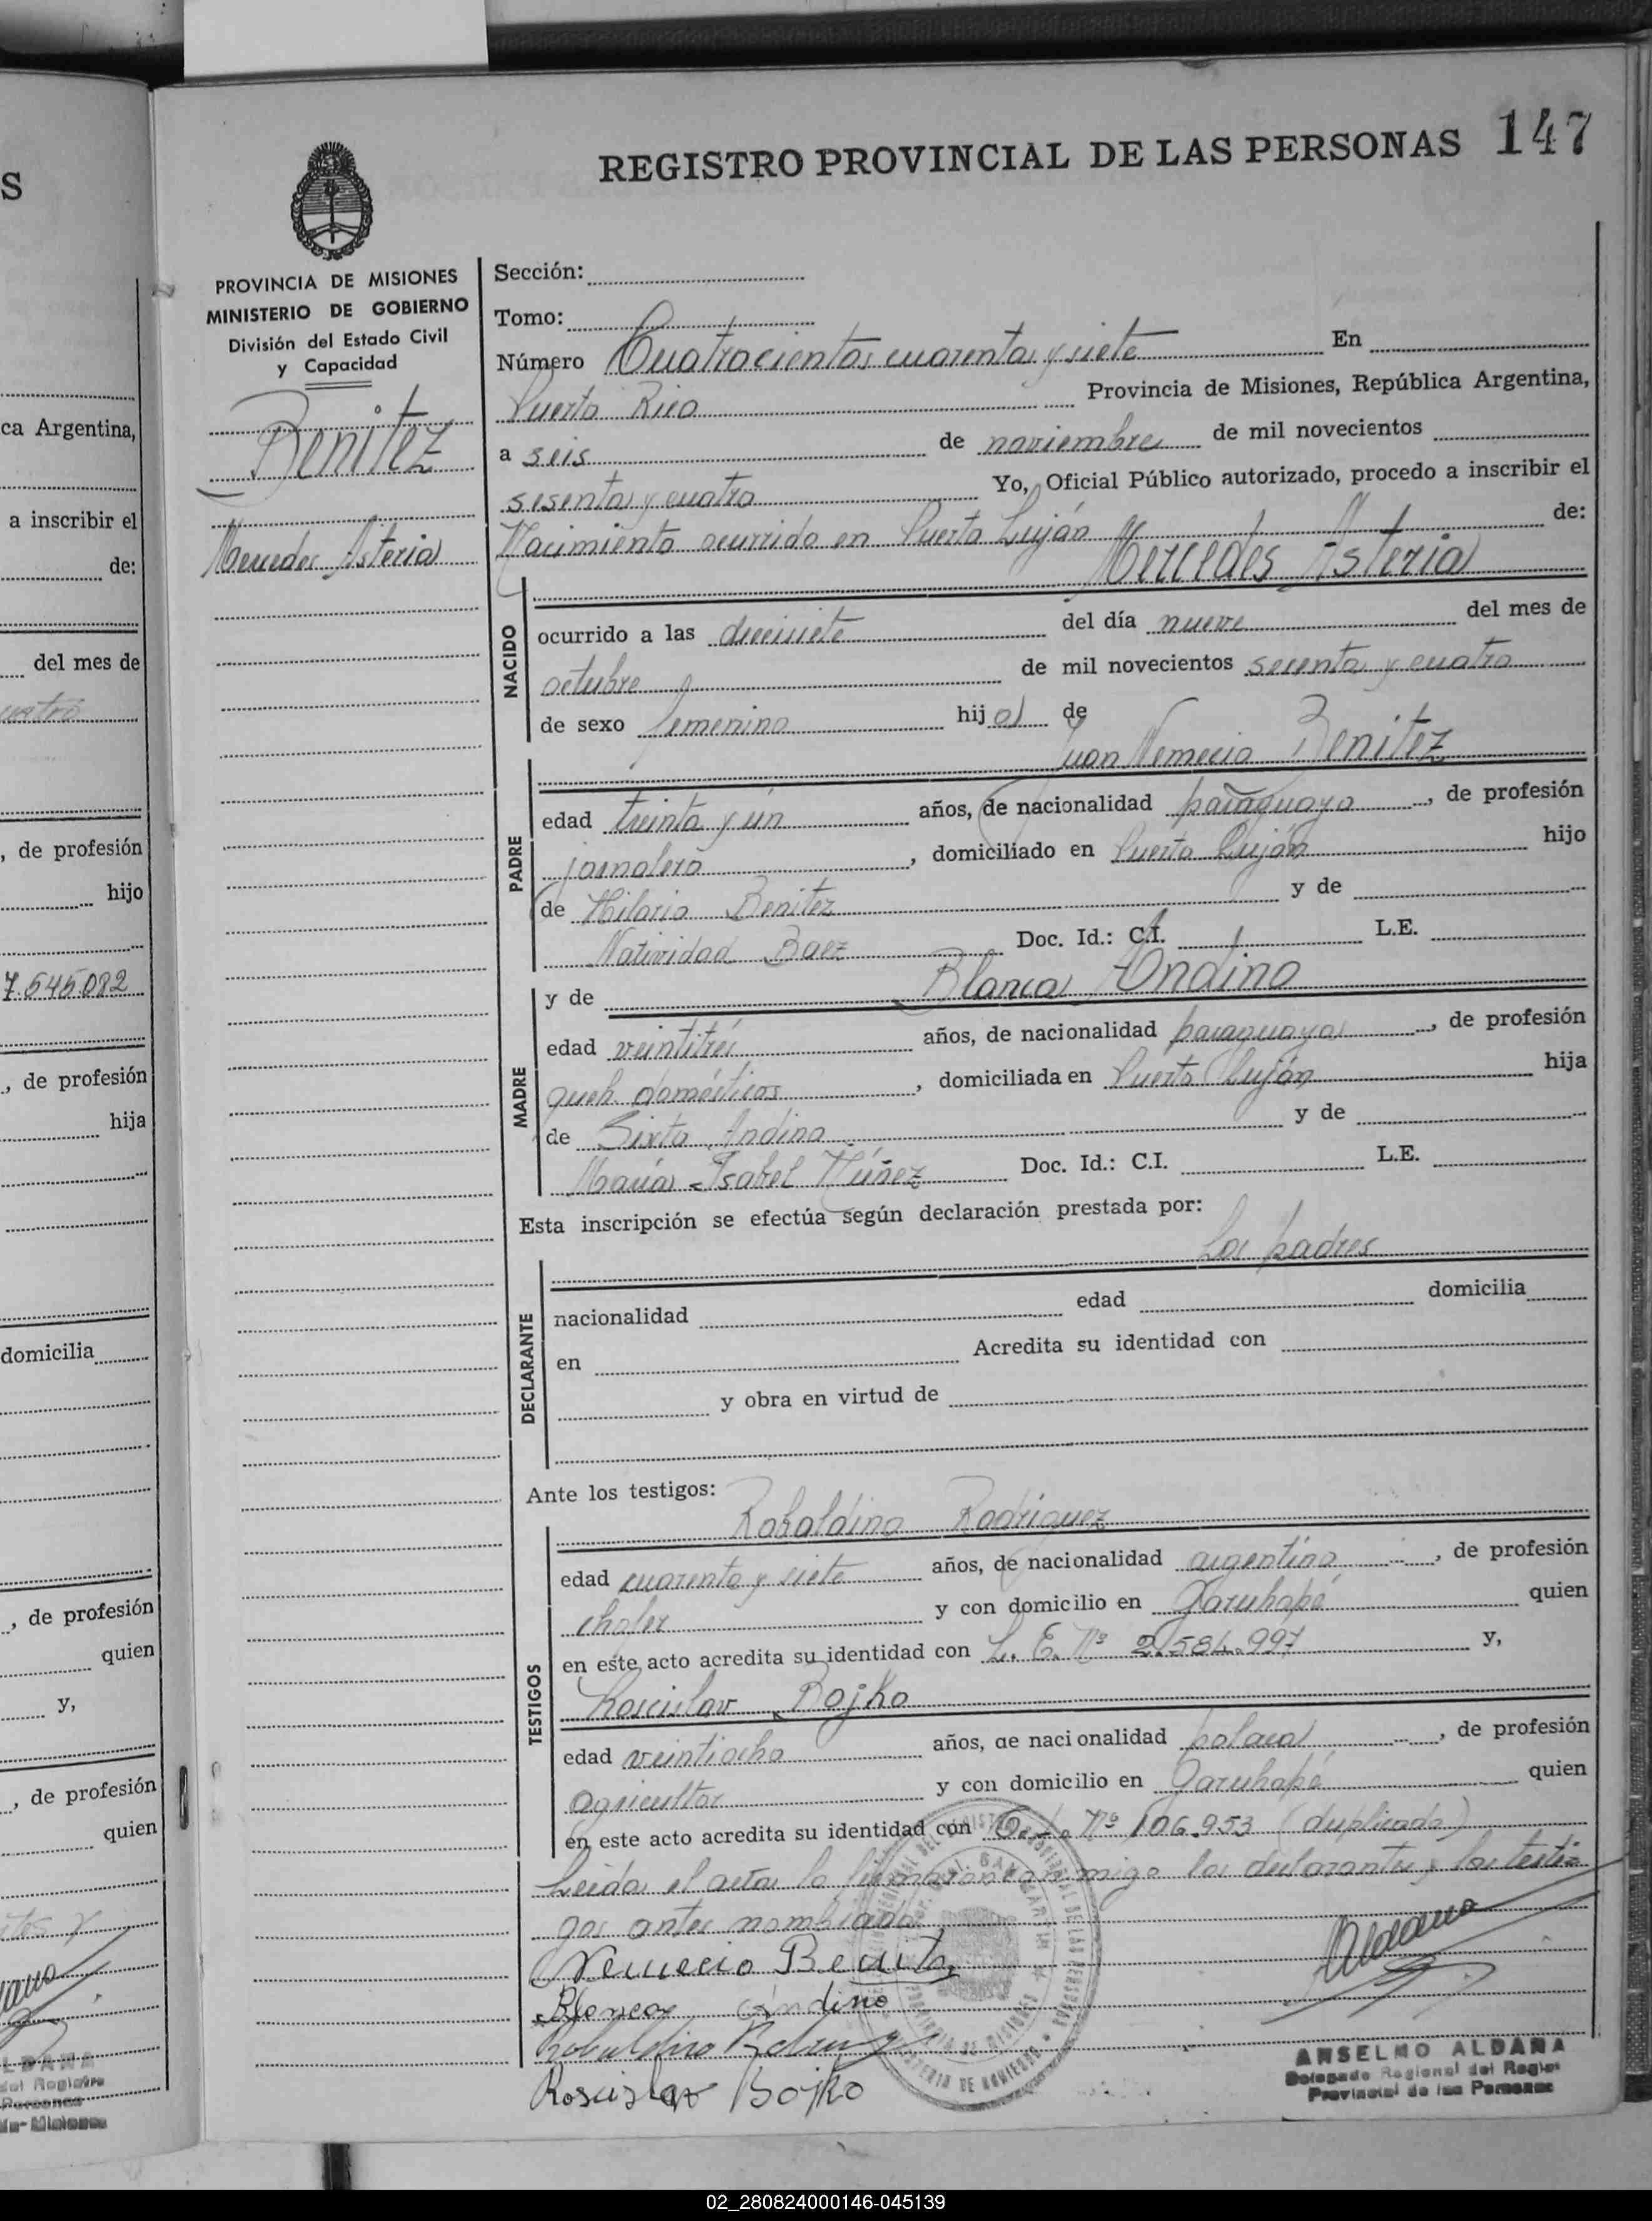 REGISTRO PROVINCIAL DE LAS PERSONAS 147
PROVINCIA DE MISIONES
MINISTERIO DE GOBIERNO
División del Estado Civil
y Capacidad
Benitez
Mercedes Asteria
Sección:
Tomo:
Número Cuatrocientos cuarenta y siete En
Puerto Rico Provincia de Misiones, República Argentina,
a seis de noviembre de mil novecientos
sesenta y cuatro Yo, Oficial Público autorizado, procedo a inscribir el
Nacimiento ocurrido en Puerto Luján de:
Mercedes Asteria
NACIDO
ocurrido a las diecisiete del día nueve del mes de
octubre de mil novecientos sesenta y cuatro
de sexo femenino hija de
Juan Nemecio Benitez
PADRE
edad treinta y un años, de nacionalidad paraguaya, de profesión
jornalero, domiciliado en Puerto Luján hijo
de Hilario Benitez y de
Natividad Baez Doc. Id.: C.I. L.E.
y de Blanca Andino
MADRE
edad veintitrés años, de nacionalidad paraguaya, de profesión
queh. domésticos, domiciliada en Puerto Luján hija
de Sixto Andino y de
María Isabel Núñez Doc. Id.: C.I. L.E.
Esta inscripción se efectúa según declaración prestada por:
Los padres
DECLARANTE
nacionalidad edad domicilia
en Acredita su identidad con
y obra en virtud de
Ante los testigos:
Robaldino Rodriguez
TESTIGOS
edad cuarenta y siete años, de nacionalidad argentina, de profesión
chofer y con domicilio en Garuhapé quien
en este acto acredita su identidad con L. E. Nº 2.584.997 y,
Roscislav Bojko
edad veintiocho años, de nacionalidad polaca, de profesión
agricultor y con domicilio en Garuhapé quien
en este acto acredita su identidad con C.I. Nº 106.953 (duplicado)
Leída el acta la firmaron conmigo los declarantes y los testi-
gos antes nombrados
Nemecio Benites
Blanca Andino
Robaldino Rodriguez
Roscislav Bojko
Aldana
ANSELMO ALDANA
Delegado Regional del Registro
Provincial de las Personas
S
ca Argentina,
a inscribir el
de:
del mes de
, de profesión
hijo
7.545.082
, de profesión
hija
domicilia
, de profesión
quien
y,
, de profesión
quien
02_280824000146-045139